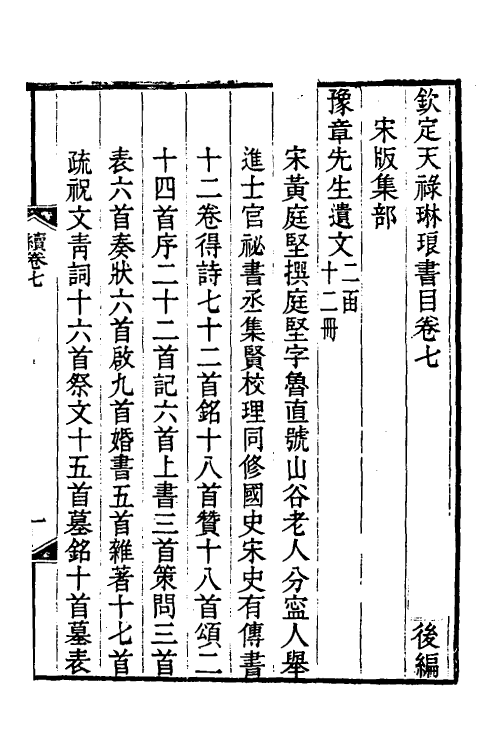 欽定天祿琳琅書目卷七　後編
宋版集部
豫章先生遺文二函十二冊
宋黃庭堅撰庭堅字魯直號山谷老人分寍人舉
進士官祕書丞集賢校理同修國史宋史有傳書
十二卷得詩七十二首銘十八首贊十八首頌二
十四首序二十二首記六首上書三首策問三首
表六首奏狀六首啟九首婚書五首雜著十七首
疏祝文青詞十六首祭文十五首墓銘十首墓表
續卷七
一